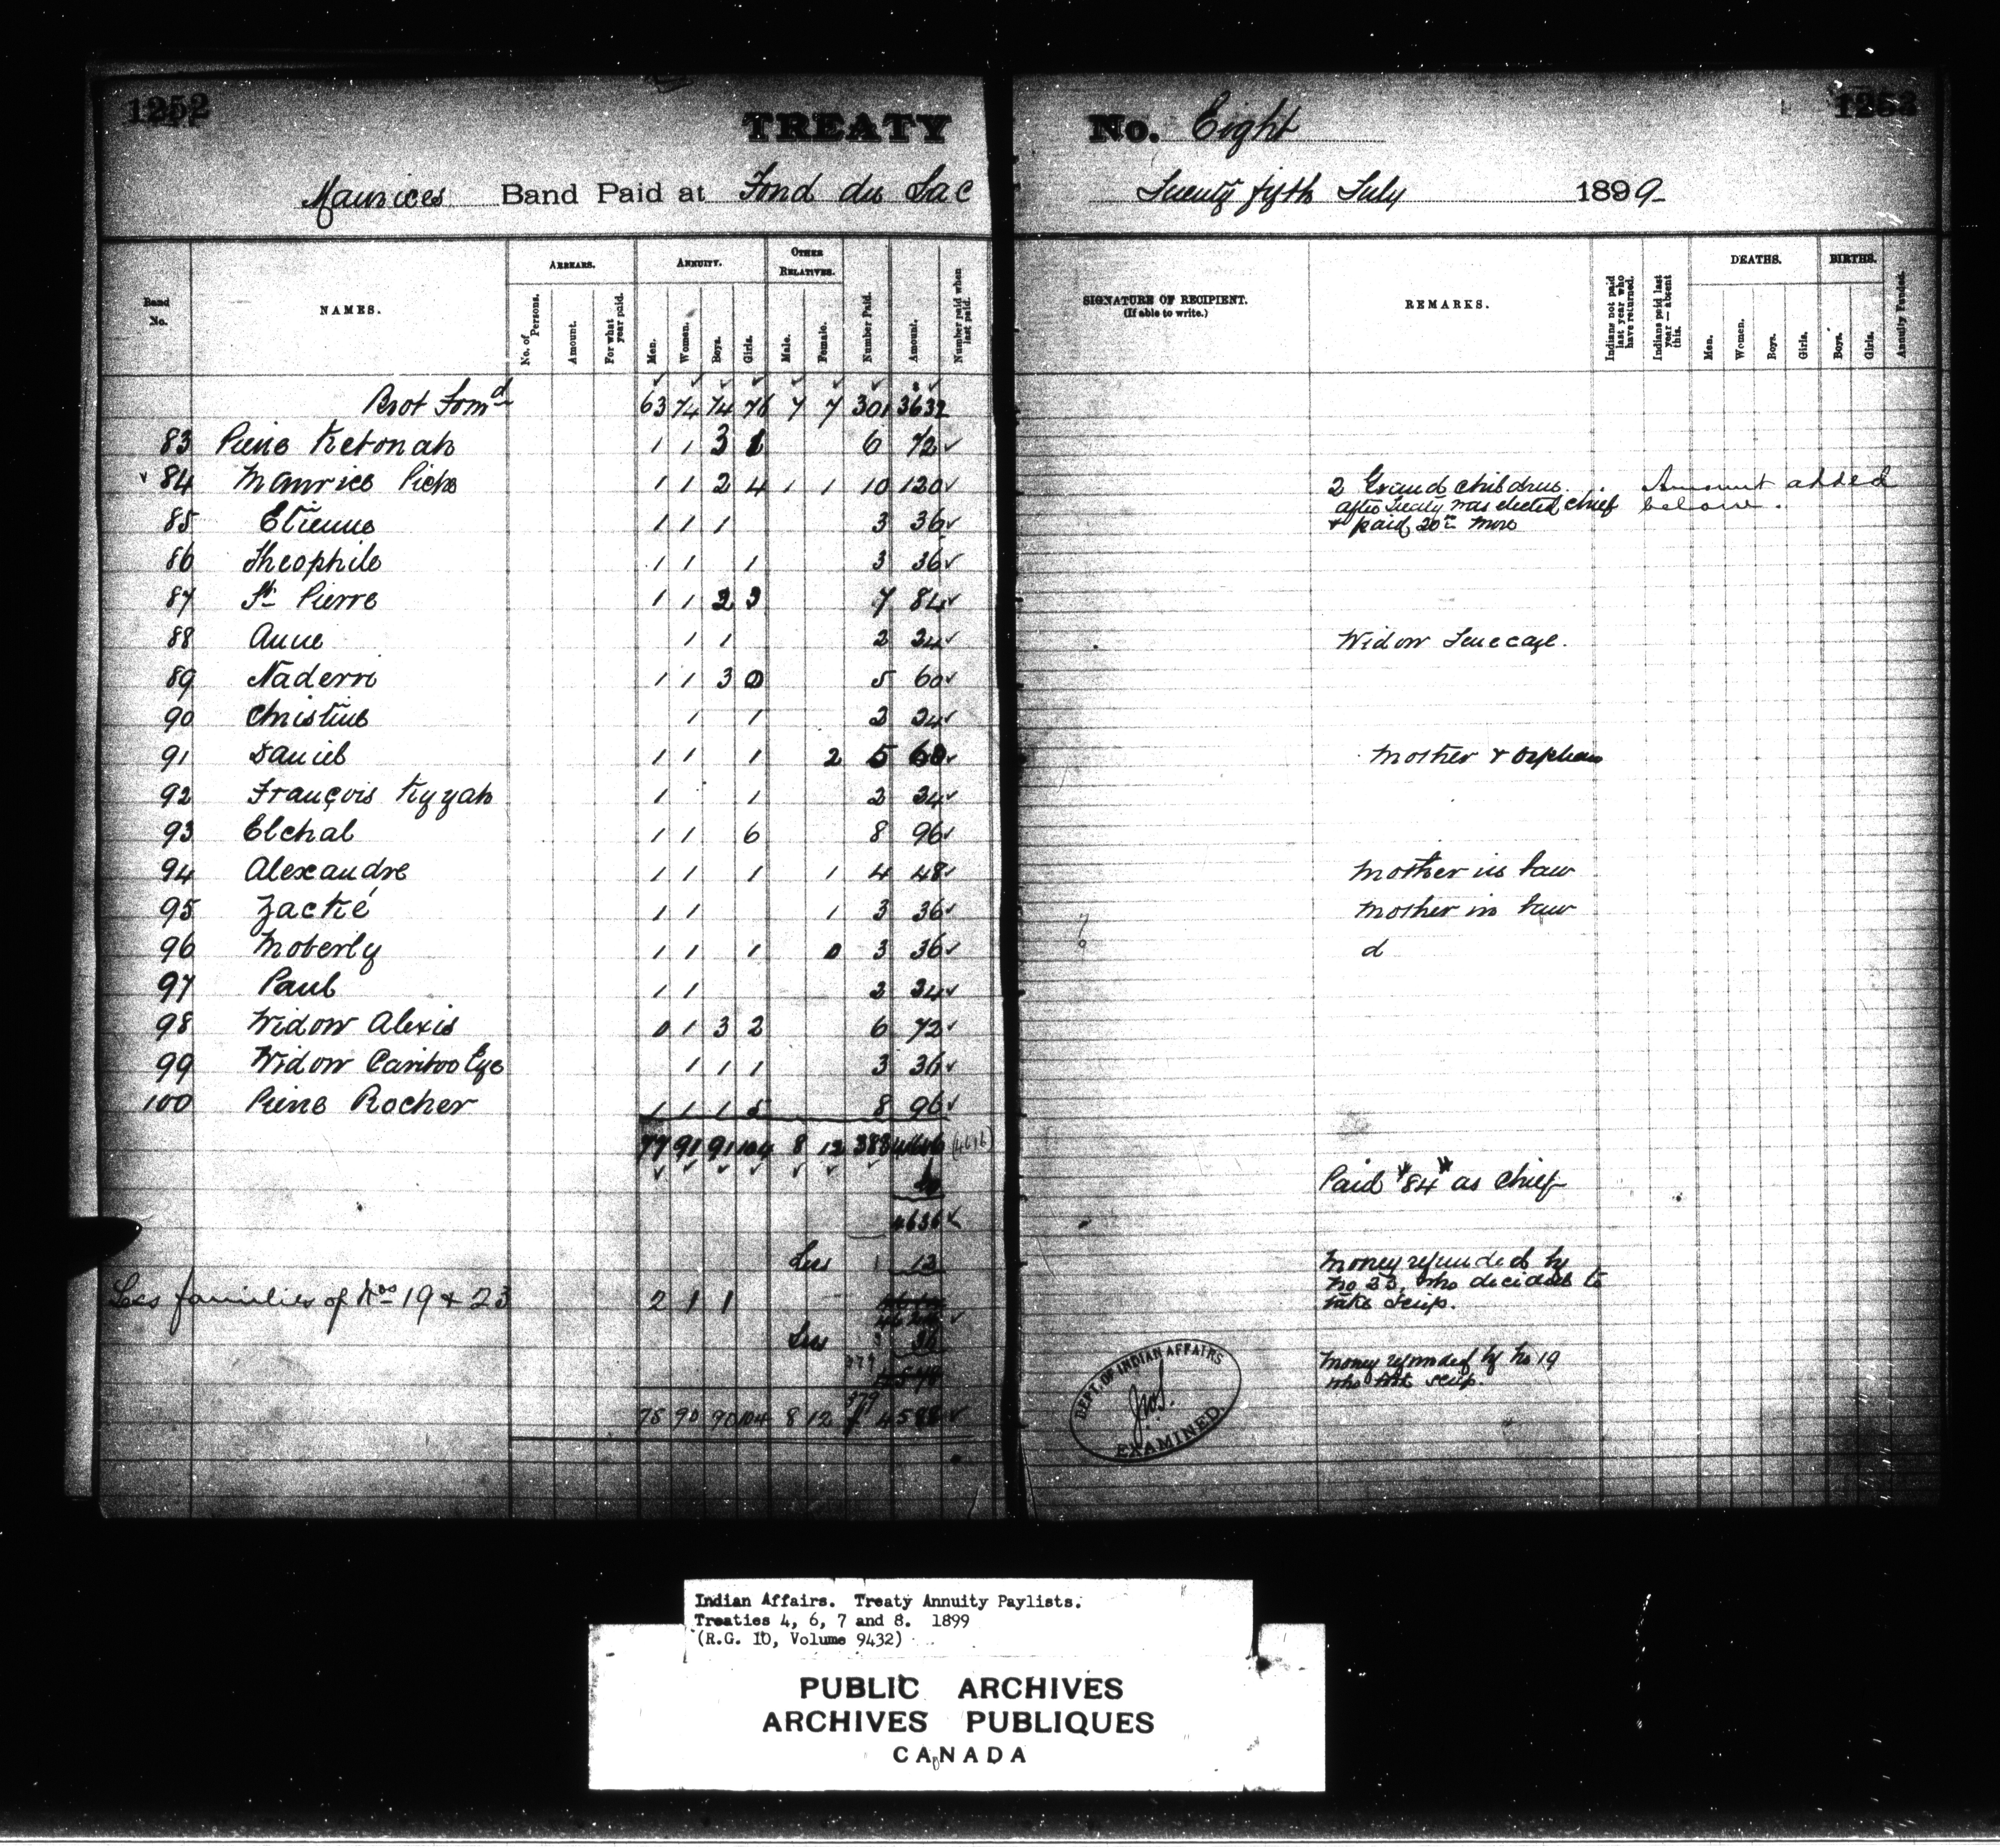 1252
1253
TREATY No. Eight
Maurices Band Paid at Fond du Lac Twenty fifth July 1899
Band No. NAMES. ARREARS. ANNUITY. OTHER RELATIVES. Number Paid. Amount. Number paid when last paid. SIGNATURE OF RECIPIENT. (If able to write.) REMARKS. Indians not paid last year who have returned. Indians paid last year — absent this. DEATHS. BIRTHS. Annuity Funded.
No. of Persons. Amount. For what year paid. Men. Women. Boys. Girls. Male. Female. Men. Women. Boys. Girls. Boys. Girls.
Brot Forwd 63 74 74 76 7 7 301 3632
83 Pierre Ketonah 1 1 3 1 6 72
84 Maurice Piche 1 1 2 4 1 1 10 120 2 Grand children Amount added
after Treaty was elected chief below.
& paid 20 more
85 Etienne 1 1 1 3 36
86 Theophile 1 1 1 3 36
87 St Pierre 1 1 2 3 7 84
88 Anne 1 1 2 24 Widow
89 Naderri 1 1 3 0 5 60
90 Christine 1 1 2 24
91 Daniel 1 1 1 2 5 60 Mother & Orphan
92 François Kyyah 1 1 2 24
93 Elchal 1 1 6 8 96
94 Alexandre 1 1 1 1 4 48 Mother in law
95 Zackié 1 1 1 3 36 Mother in law
96 Moberly 1 1 1 0 3 36 d
97 Paul 1 1 2 24
98 Widow Alexis 0 1 3 2 6 72
99 Widow Cariboo Eye 1 1 1 3 36
100 Pierre Rocher 1 1 1 5 8 96
77 91 91 104 8 12 383 4616 (4616)
Paid "84" as Chief
4636
Less 1 12 Money refunded by
No 23, who decided to
take scrip.
Less families of Nos 19 & 23 2 1 1
Less 3 36
379
Money refunded by No 19
who took scrip.
75 90 90 104 8 12 379 4588
DEPT. OF INDIAN AFFAIRS
EXAMINED.
Indian Affairs. Treaty Annuity Paylists.
Treaties 4, 6, 7 and 8. 1899
(R.G. 10, Volume 9432)
PUBLIC ARCHIVES
ARCHIVES PUBLIQUES
CANADA